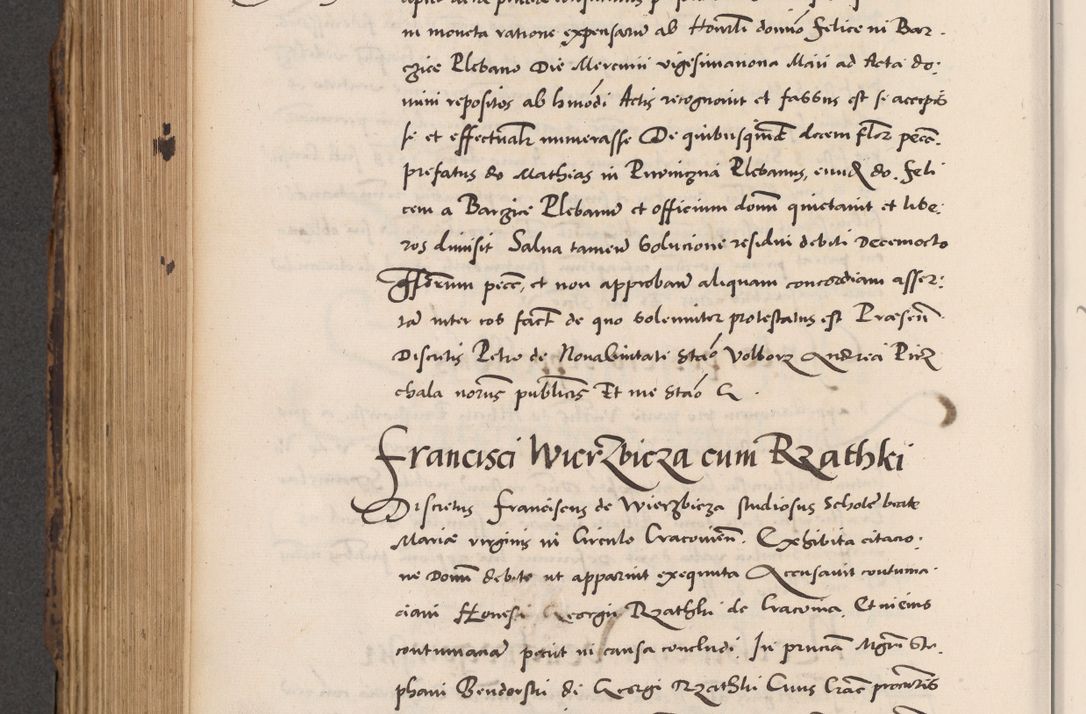 in moneta ratione expensarum ab Honorabili domino Felice in Bar-
gzice Plebano Die Mercurii vigesimanona Maii ad Acta do:
mini repositos ab hmodi Actis recognovit et fassus est se accepis
se et effectualr numerasse De quibusquidem decem flor pecc.
prefatus do Mathias in Plebanus, eundem do. Feli
cem a Bargzice Plebanum et officium domn quietavit et libe:
ros dimisit Salva tamen Solucione residui debiti Decemocto
pecc, et non approbam aliquam concordiam asser:
tam inter eos fact de quo Solenniter protestatus est Præsen
Discretis Petro de Novacivitate Andrea Piek
chala noriis publicis Et me
Francisci Wierzbicza cum Rzathki
Discretus Franciscus de Wierzbicza studiosus Scholae beate
Mariæ virginis in Circulo Cracovien. Exhibita citacio:
ne Domn debite ut apparuit exequuta Accusavit contuma-
ciam Honesti Georgii Rzathki de Cracovia. Et in eius
contumaciam petiit in causa concludi. In prnciam Mgri Ste-
phani Bendorski di Georgi Rzathki Civis Crac procuratoris